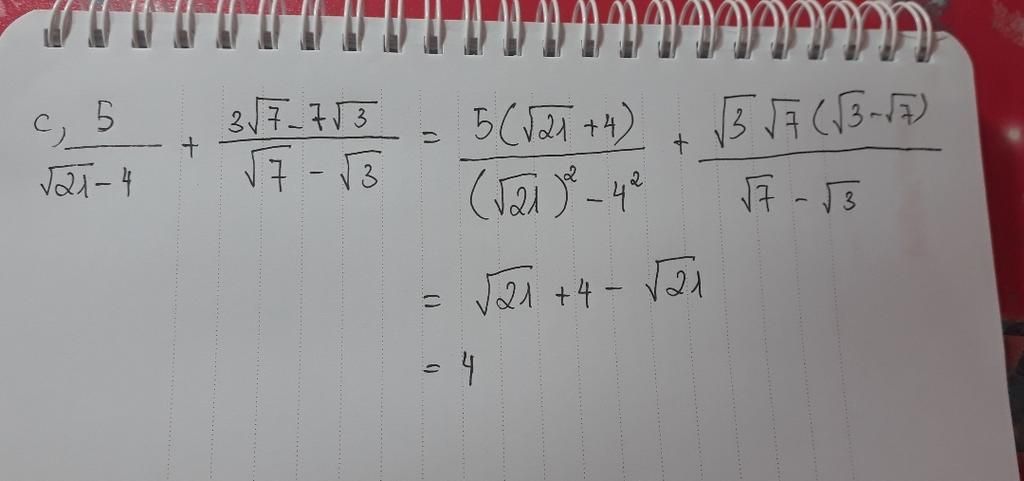 c, 5/(√21 - 4) + (3√7 - 7√3)/(√7 - √3) = 5(√21 + 4)/((√21)² - 4²) + √3 √7 (√3 - √7)/(√7 - √3)
= √21 + 4 - √21
= 4